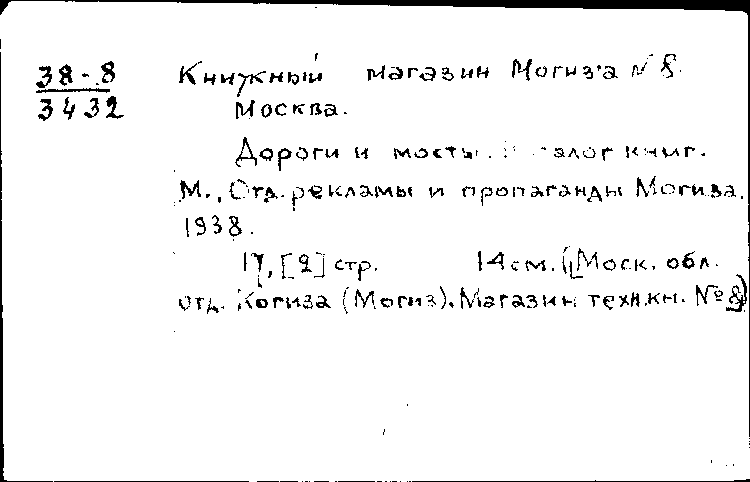 38-8
3432
Книжный магазин Могиз'а № 8.
Москва.
Дороги и мосты. книг.
М., Отд. рекламы и пропаганды Могиза.
1938.
17, [2] стр. 14 см. ([Моск. обл.
отд. Когиза (Могиз). Магазин техн.кн. № 8)